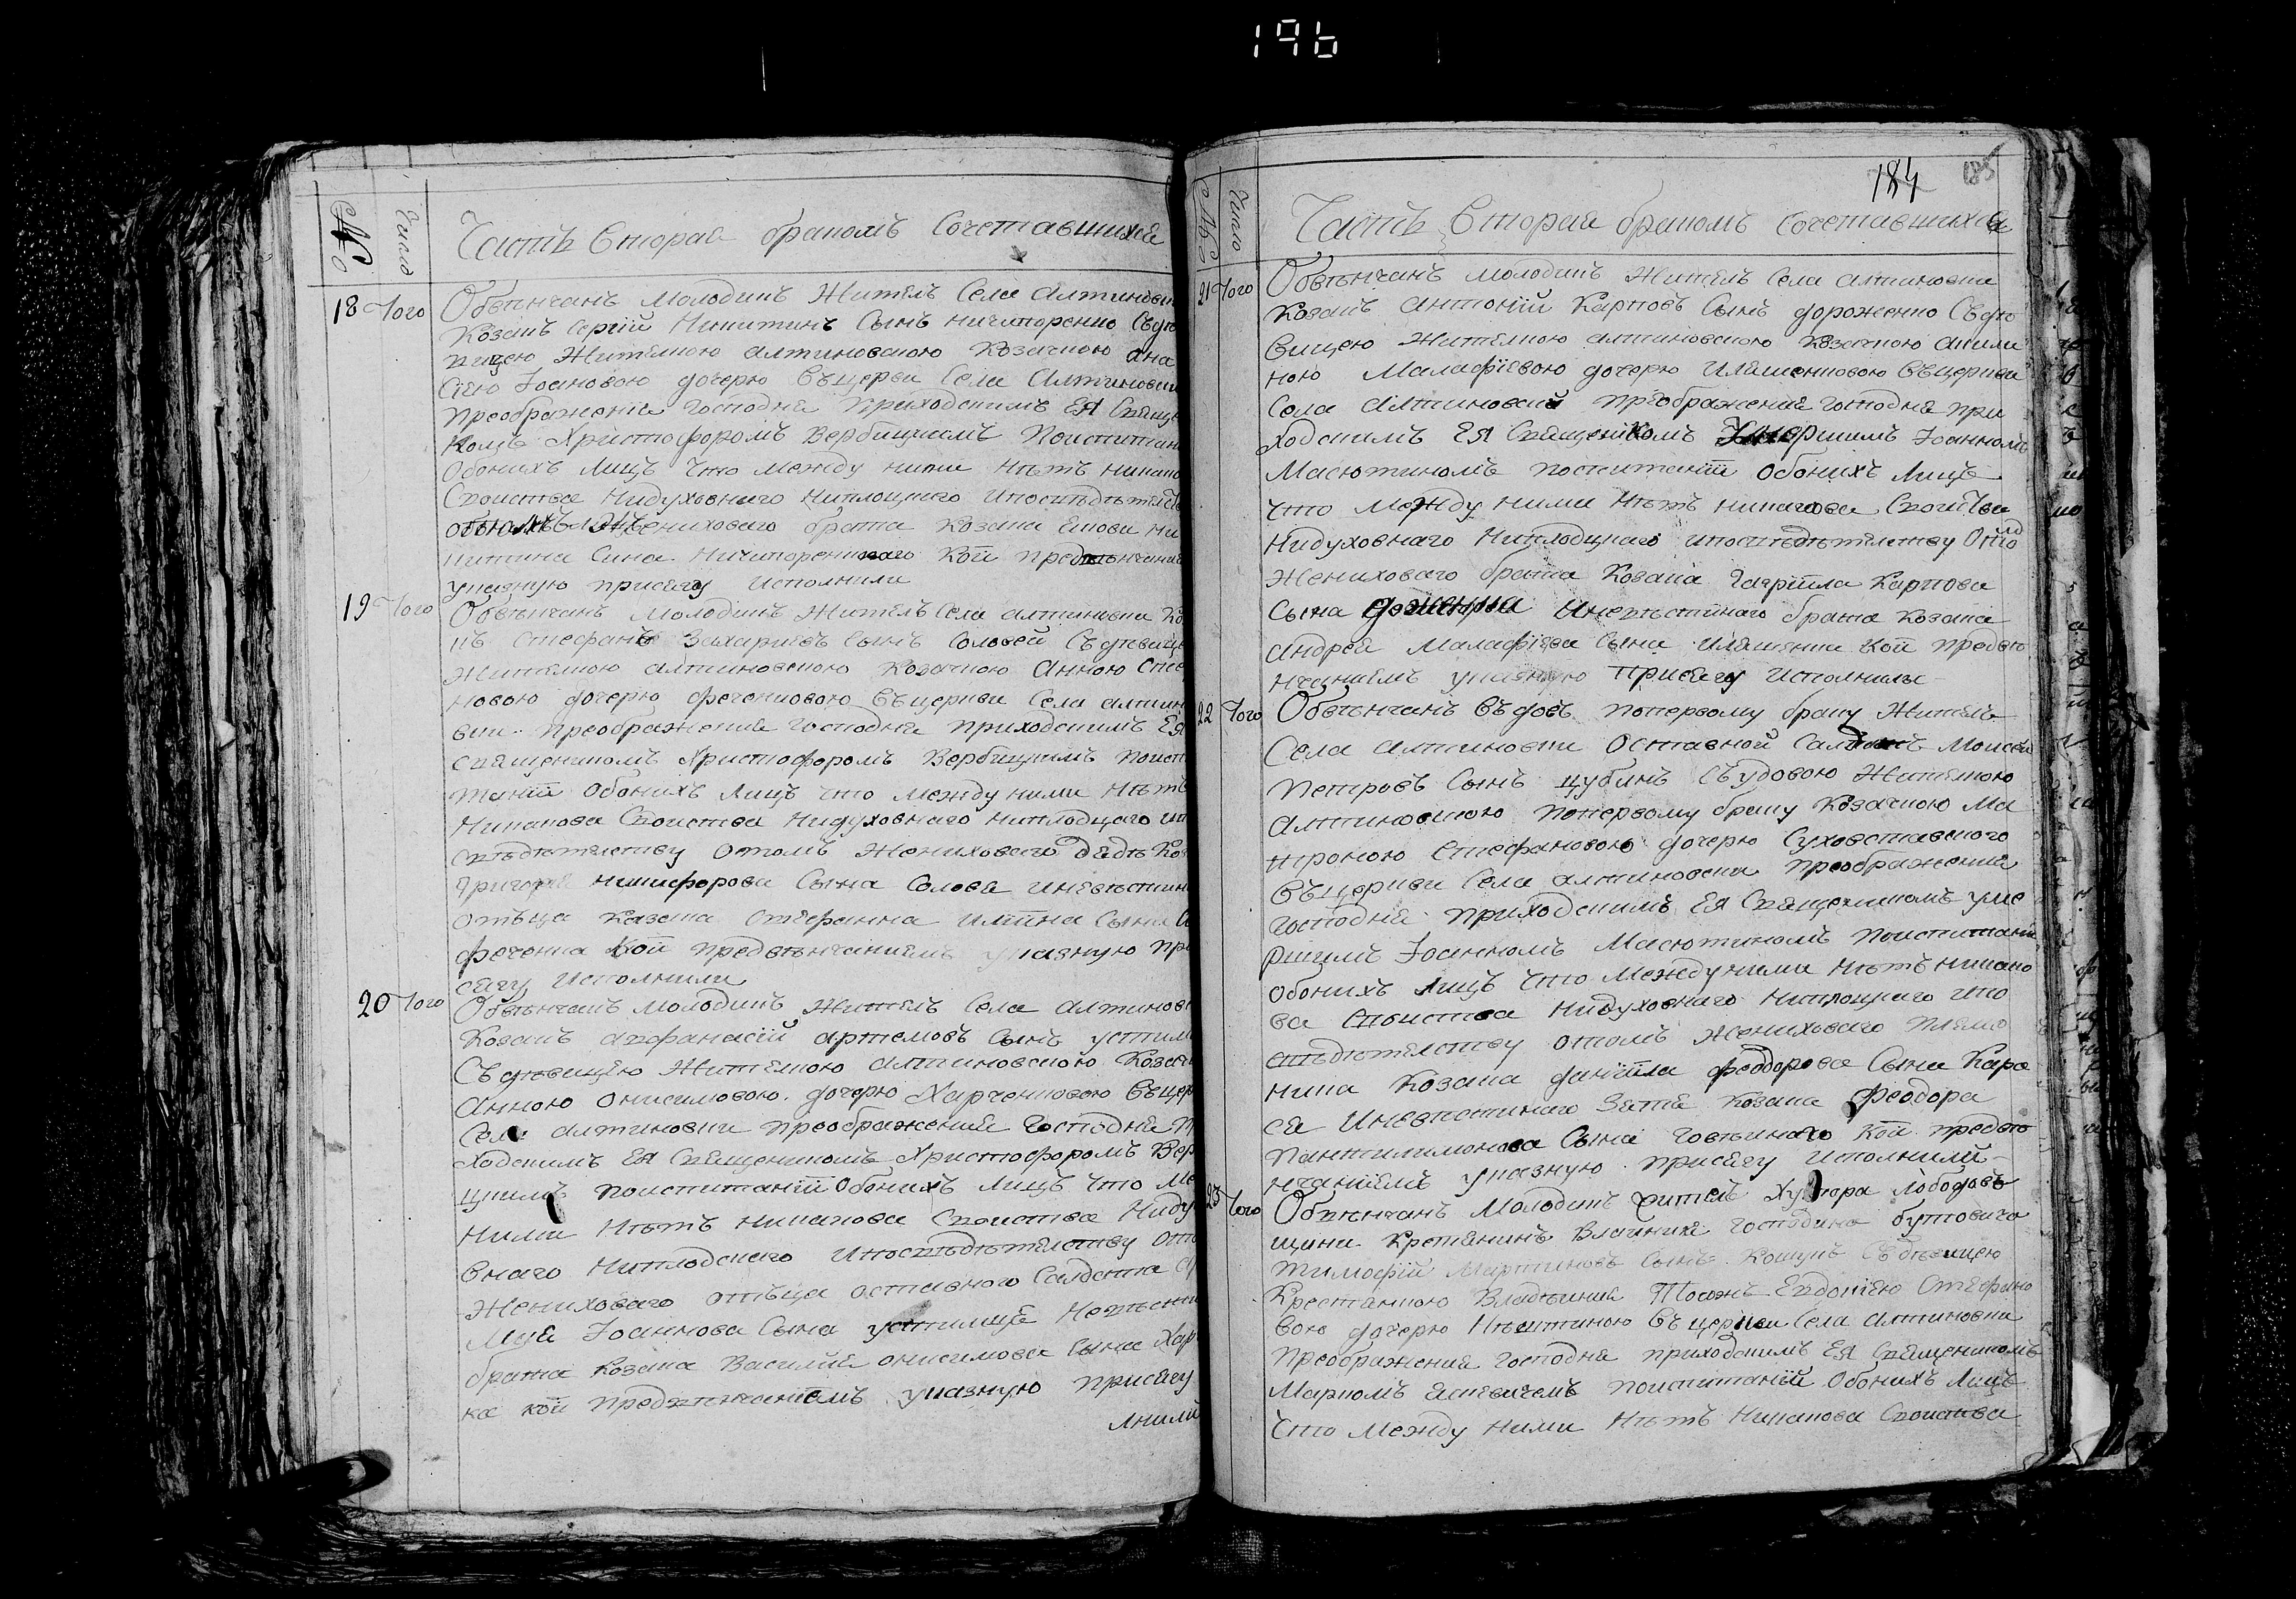 196
№ Число Часть Вторая бракомъ Сочетавшихся
18 Того Обвѣнчанъ Молодикъ Житель Села Алтиновк
Козакъ Сергій Никитинъ Сынъ Ничипоренко Съдѣ
вицею Жителкою алтиновскою Козачкою Ана
сіею Іоановою дочерю Въцеркви Села Алтиновки
Преображенія Господня Приходскимъ Ея Свяще
комъ Христофоромъ Вербицкимъ Поиспитан
Обоихъ Лицъ Что между ними Нѣтъ никако
Свойства Нидуховнаго Ниплоцкаго ипосвѣдѣтелс
Жениховаго брата Козака Ни
китина Сина Ничипоренкаго Кои предвѣнчание
указную присягу исполнили
19 Того Обвѣнчанъ Молодикъ Житель Села алтиновки Ко
къ Стефанъ Захаріевъ Сынъ Соловей Съдѣвице
Жителкою алтиновскою Козачкою Анною Сте
новою дочерю феченковою Въцеркви Села алтин
вки преображенія Господня приходскимъ Ея
священикомъ Христофоромъ Вербицкимъ Поисп
таніи Обоихъ Лицъ что между ними Нѣтъ
Никакова Свойства Нидуховнаго ниплодцаго ип
свѣдѣтелству Отомъ Жениховаго дядѣ Ко
Григорія Никифорова Сына Солова иневѣстин
отъца Казака Стефана Сына
феченка кои предвѣнчаниемъ указную при
сягу Исполнили
20 Того Обвѣнчанъ Молодикъ Житель Села алтиновк
Козакъ афанасій артемовъ Сынъ устим
Съдѣвицею Жителкою алтиновскою Козач
Анною онисимовою дочерю Харченковою Въцер
Села алтиновки преображения Господня П
ходскимъ Ея Священикомъ Христофоромъ Вер
цкимъ поиспитаніи Обоихъ Лицъ что Ме
Ними Нѣтъ никакова Свойства Ниду
внаго Ниплодскаго Ипосвѣдѣтелству От
Жениховаго отъца оставного Салдата
Іоаннова Сына Невѣсти
брата Козака Василия онисимова Сына Хар
ка кои предвѣнчаніемъ указную присягу
лнили
184 185
№ Число Часть Вторая бракомъ сочетавшихся
21 Того Обвѣнчанъ Молодикъ Житель Села алтиновки
Козакъ Антоній Карповъ Сынъ дорошенко Съдѣ
вицею Жителкою алтиновскою Козачкою акили
ною Малафіевою дочерю Иляшенковою Въцеркви
Села Алтиновки преображения Господня при
ходскимъ Ея Священикомъ Умершимъ Іоанномъ
Масютиномъ поиспитаніи Обоихъ Лицъ
что Между ними Нѣтъ никакова Свойства
Нидуховнаго Ниплодцкаго ипосвѣдѣтелству Отомъ
Жениховаго брата Козака Гаврііла Карпова
Сына Иневѣстинаго брата Козака
андрея Малафіева Сына Иляшенка Кои предвѣ
нчаниемъ указную Присягу исполнили
22 Того Обвѣнчанъ Въдовъ поперьвому браку Житель
Села алтиновки Оставной Салдатъ Моисей
Петровъ Сынъ цубинъ Съудовою Жителкою
алтиновскою поперьвому браку Козачкою Ма
троною Стефановою дочерю Суховставского
Въцеркви Села алтиновки преображения
Господня приходскимъ Ея Священикомъ уме
ршимъ Іоанномъ Масютиномъ поиспитани
обоихъ лицъ Что Между ними Нѣтъ никако
ва Своиства Нидуховнаго Ниплоцкаго ипо
свѣдѣтелству отомъ Жениховаго племе
ника Козака даніила феодорова Сына Кара
ся Иневѣстинаго Зятя Козака Феодора
Пантилимонова Сына Кои предвѣ
нчаниемъ указную присягу исполнили
23 Того Обвѣнчанъ Молодикъ житель Хутора Лободовъ
щини Крестянинъ Владѣния Господина бутовича
Тимофій Мартиновъ Сынъ Кошукъ Съдѣвицею
Крестянкою Владѣния Тогожъ Евдокіею Стефано
вою дочерю Въцеркви Села алтиновки
преображения Господня приходскимъ Ея Священикомъ
Маркомъ поиспитаній Обоихъ Лицъ
Что Между Ними Нѣтъ Никакова Своиства